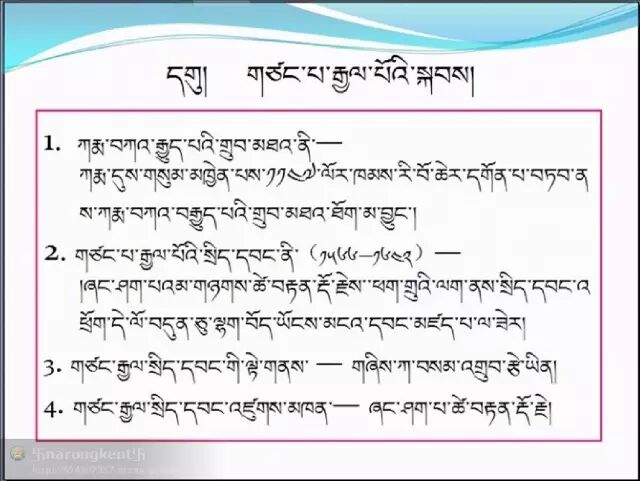 དགུ། གཙང་པ་རྒྱལ་པོའི་སྐབས།
1. ཀརྨ་བཀའ་རྒྱུད་པའི་གྲུབ་མཐའ་ནི་—
ཀརྨ་དུས་གསུམ་མཁྱེན་པས་༡༡༤༧་ལོར་ཁམས་རི་བོ་ཆེར་དགོན་པ་བཏབ་ན
ས་ཀརྨ་བཀའ་བརྒྱུད་པའི་གྲུབ་མཐའ་ཐོག་མ་བྱུང་།
2. གཙང་པ་རྒྱལ་པོའི་སྲིད་དབང་ནི་ (༡༥༦༦—༡༦༤༢) —
།ཞང་ཤག་པའམ་གཉགས་ཚེ་བརྟན་རྡོ་རྗེས་ཕག་གྲུའི་ལག་ནས་སྲིད་དབང་འ
ཕྲོག་དེ་ལོ་བདུན་ཅུ་ལྷག་བོད་ཡོངས་མངའ་དབང་མཛད་པ་ལ་ཟེར།
3. གཙང་རྒྱལ་སྲིད་དབང་གི་ལྟེ་གནས་ — གཞིས་ཀ་བསམ་འགྲུབ་རྩེ་ཡིན།
4. གཙང་རྒྱལ་སྲིད་དབང་འཛུགས་མཁན་— ཞང་ཤག་པ་ཚེ་བརྟན་རྡོ་རྗེ།
卐narongkent卐